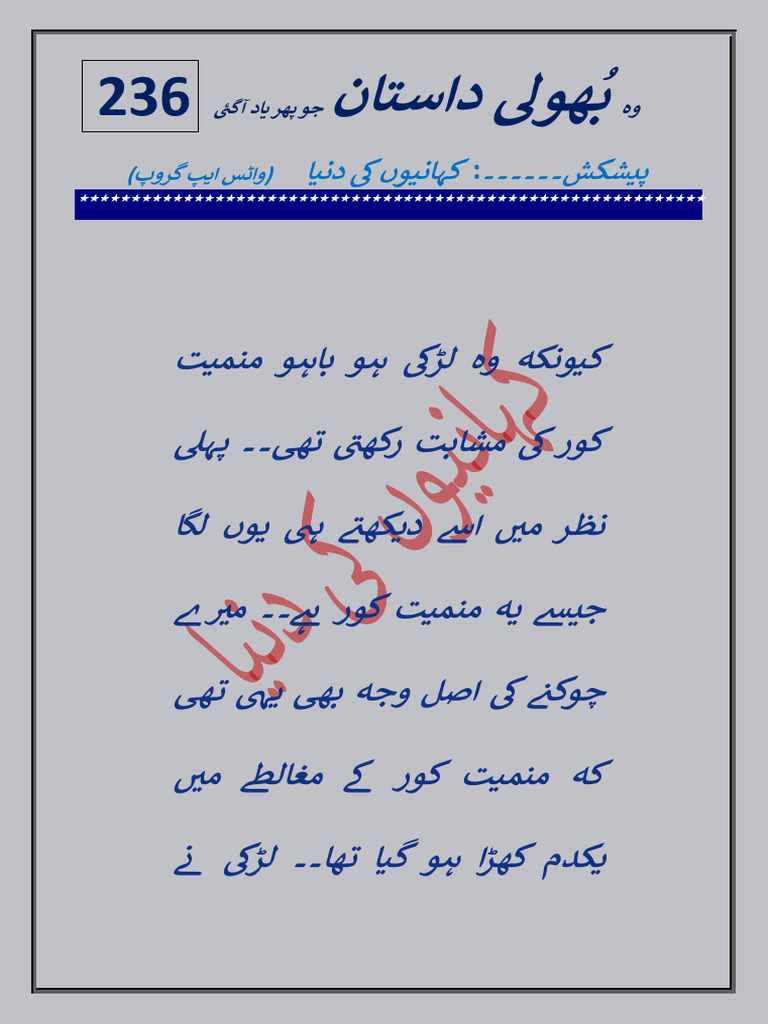 وہ بُھولی داستان جو پھر یاد آگئی 236
پیشکش۔۔۔۔۔۔: کہانیوں کی دنیا (واٹس ایپ گروپ)
کیونکہ وہ لڑکی ہو باہو منمیت
کور کی مشابت رکھتی تھی۔۔ پہلی
نظر میں اسے دیکھتے ہی یوں لگا
جیسے یہ منمیت کور ہے۔۔ میرے
چوکنے کی اصل وجہ بھی یہی تھی
کہ منمیت کور کے مغالطے میں
یکدم کھڑا ہو گیا تھا۔۔ لڑکی نے
کہانیوں کی دنیا